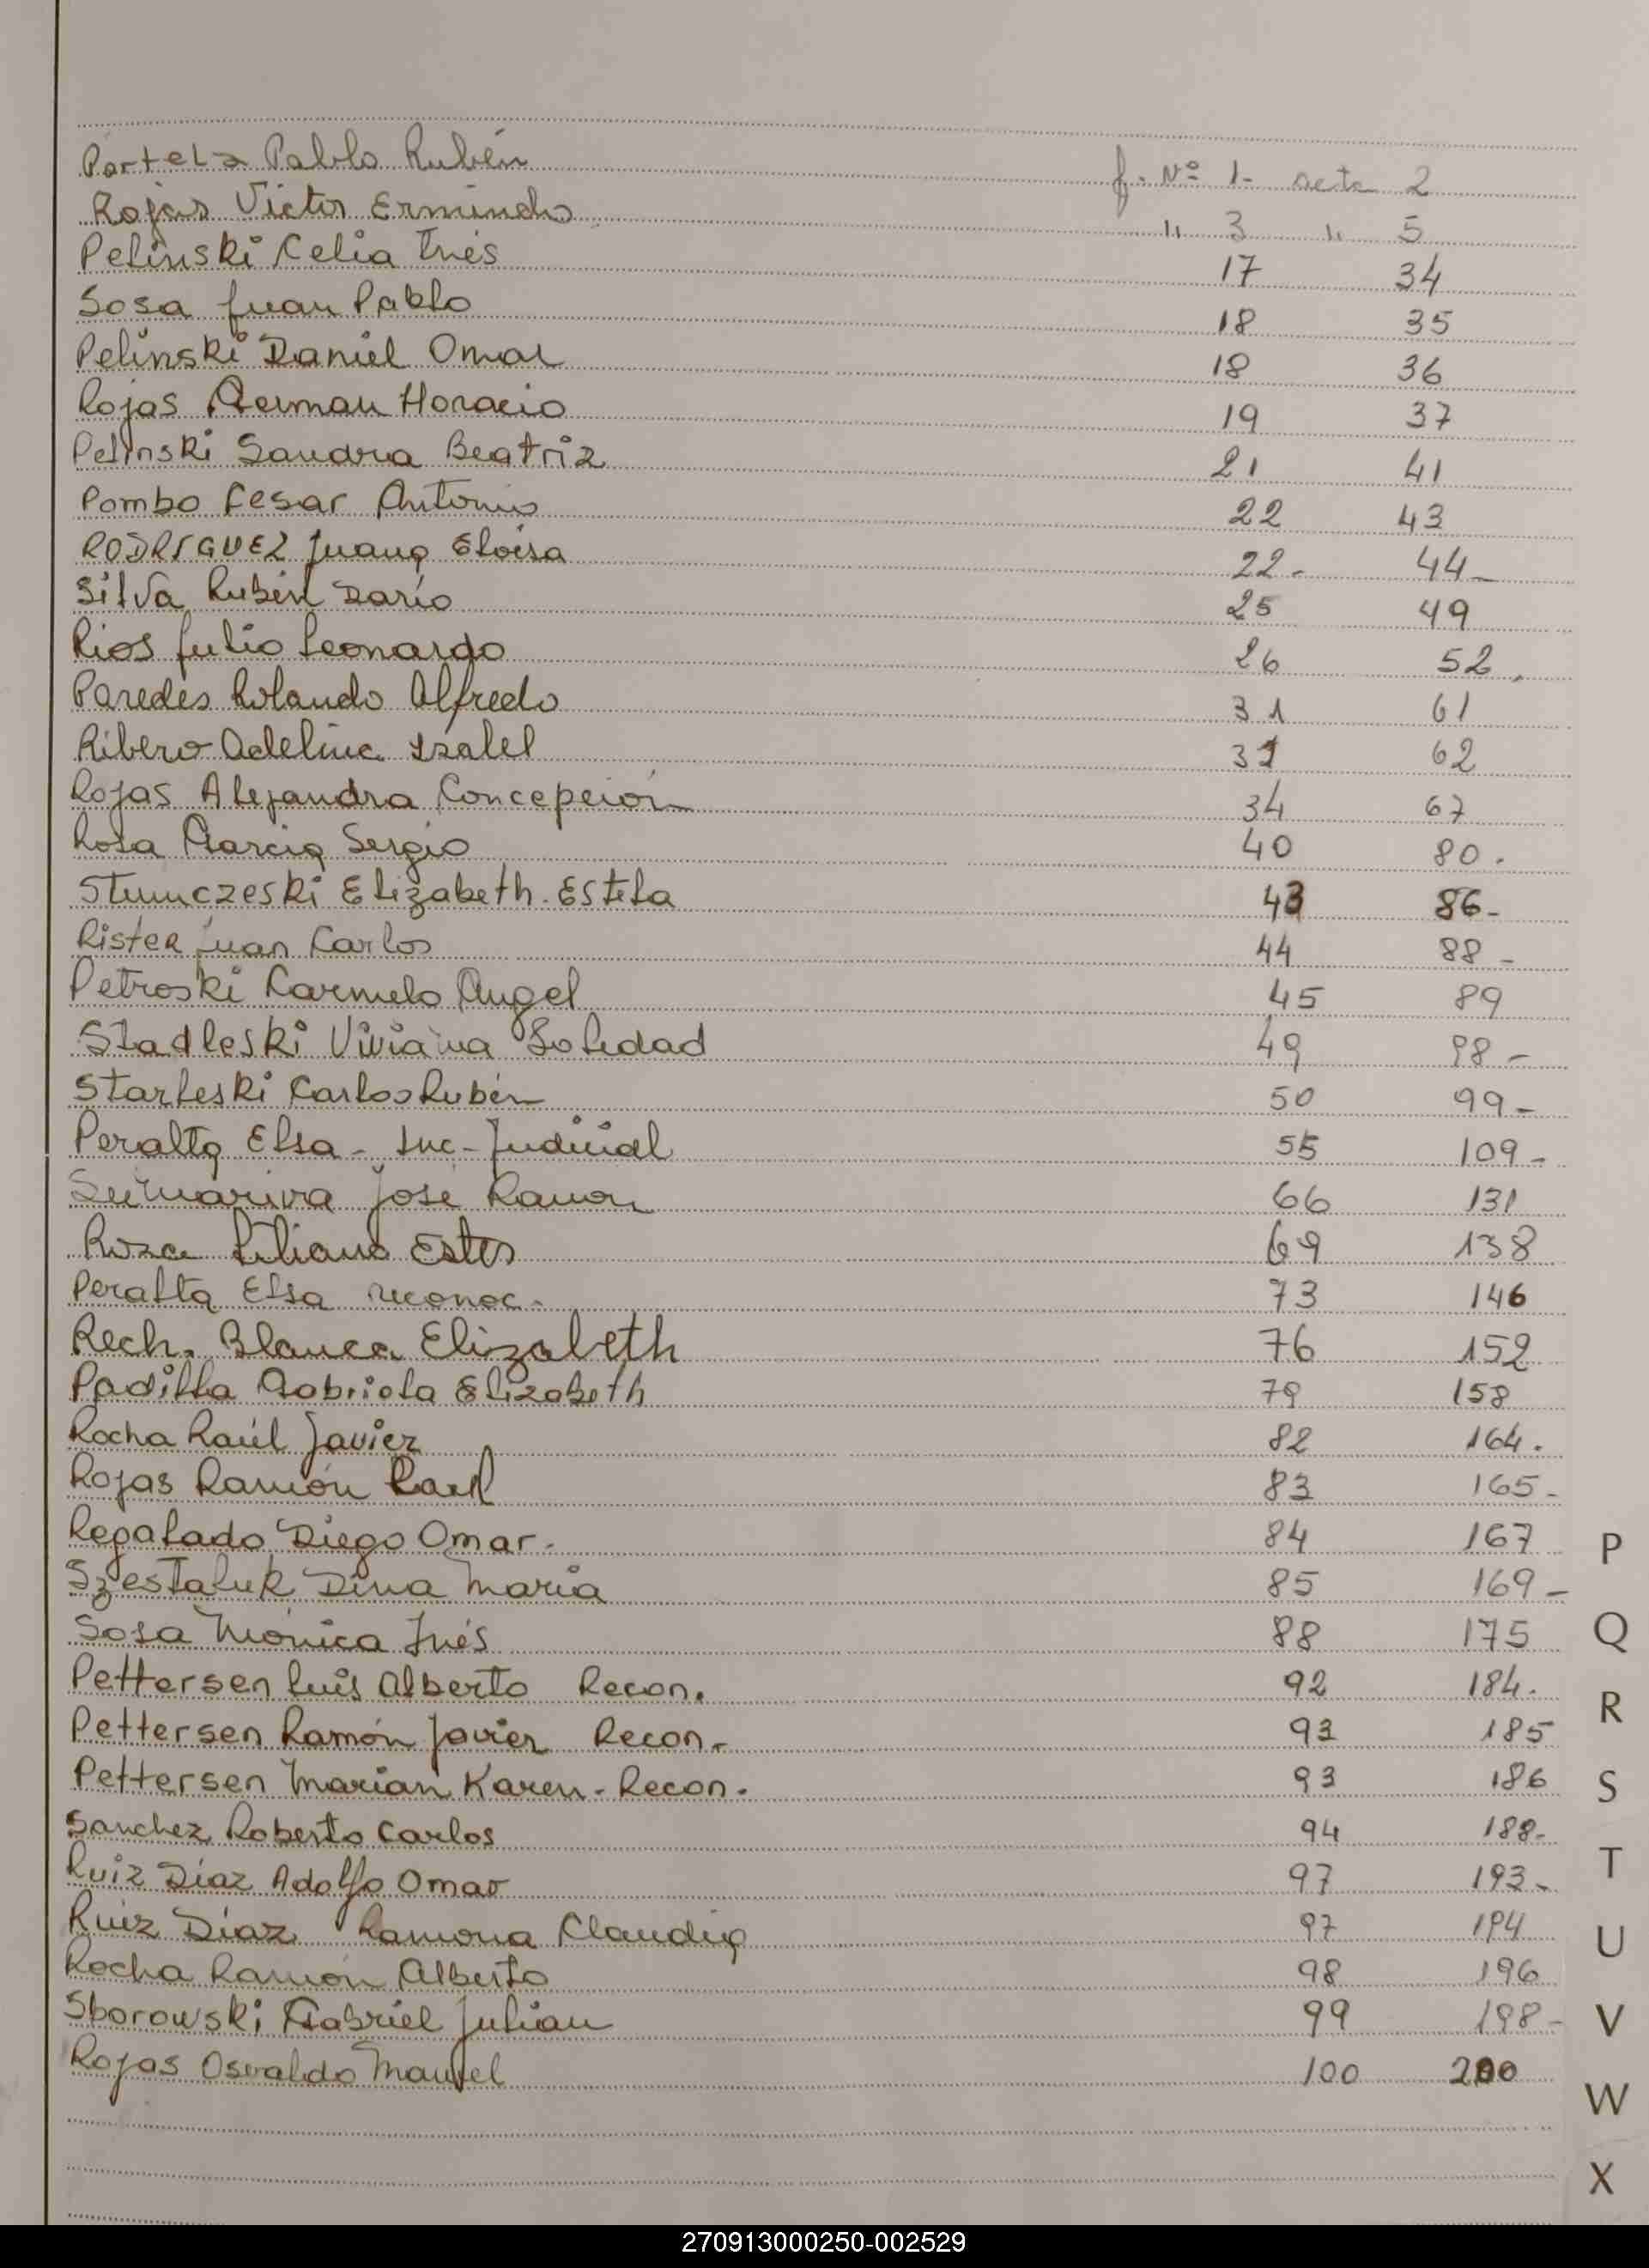 Portela Pablo Rubén f. Nº 1- acta 2
Rojas Victor Ermindo " 3 " 5
Pelinski Celia Inés 17 34
Sosa Juan Pablo 18 35
Pelinski Daniel Omar 18 36
Rojas German Horacio 19 37
Pelinski Sandra Beatriz 21 41
Pombo Cesar Antonio 22 43
RODRIGUEZ Juana Eloisa 22- 44-
Silva Rubén Darío 25 49
Rios Julio Leonardo 26 52
Paredes Rolando Alfredo 31 61
Ribero Adelina Isabel 31 62
Rojas Alejandra Concepción 34 67
Rosa Marcia Sergio 40 80.
Elizabeth. Estela 43 86-
Rister Juan Carlos 44 88-
Petroski Carmelo Angel 45 89
Stadleski Viviana Soledad 49 98-
Starleski Carlos Rubén 50 99-
Peralta Elsa - Inc - Judicial 55 109-
José Ramon 66 131
Liliana Ester 69 138
Peralta Elsa reconoc. 73 146
Rech. Blanca Elizabeth 76 152
Padilla Gabriela Elizabeth 79 158
Rocha Raúl Javier 82 164.
Rojas Ramón Raul 83 165-
Regalado Diego Omar. 84 167
Szestaluk Dina Maria 85 169-
Sosa Mónica Inés 88 175
Pettersen Luis Alberto Recon. 92 184.
Pettersen Ramón Javier Recon- 93 185
Pettersen Marian Karen - Recon. 93 186
Sanchez Roberto Carlos 94 188-
Ruiz Díaz Adolfo Omar 97 193-
Ruiz Díaz Ramona Claudia 97 194
Rocha Ramón Alberto 98 196
Sborowski Gabriel Julian 99 198-
Rojas Osvaldo Manuel 100 200
P
Q
R
S
T
U
V
W
X
270913000250-002529